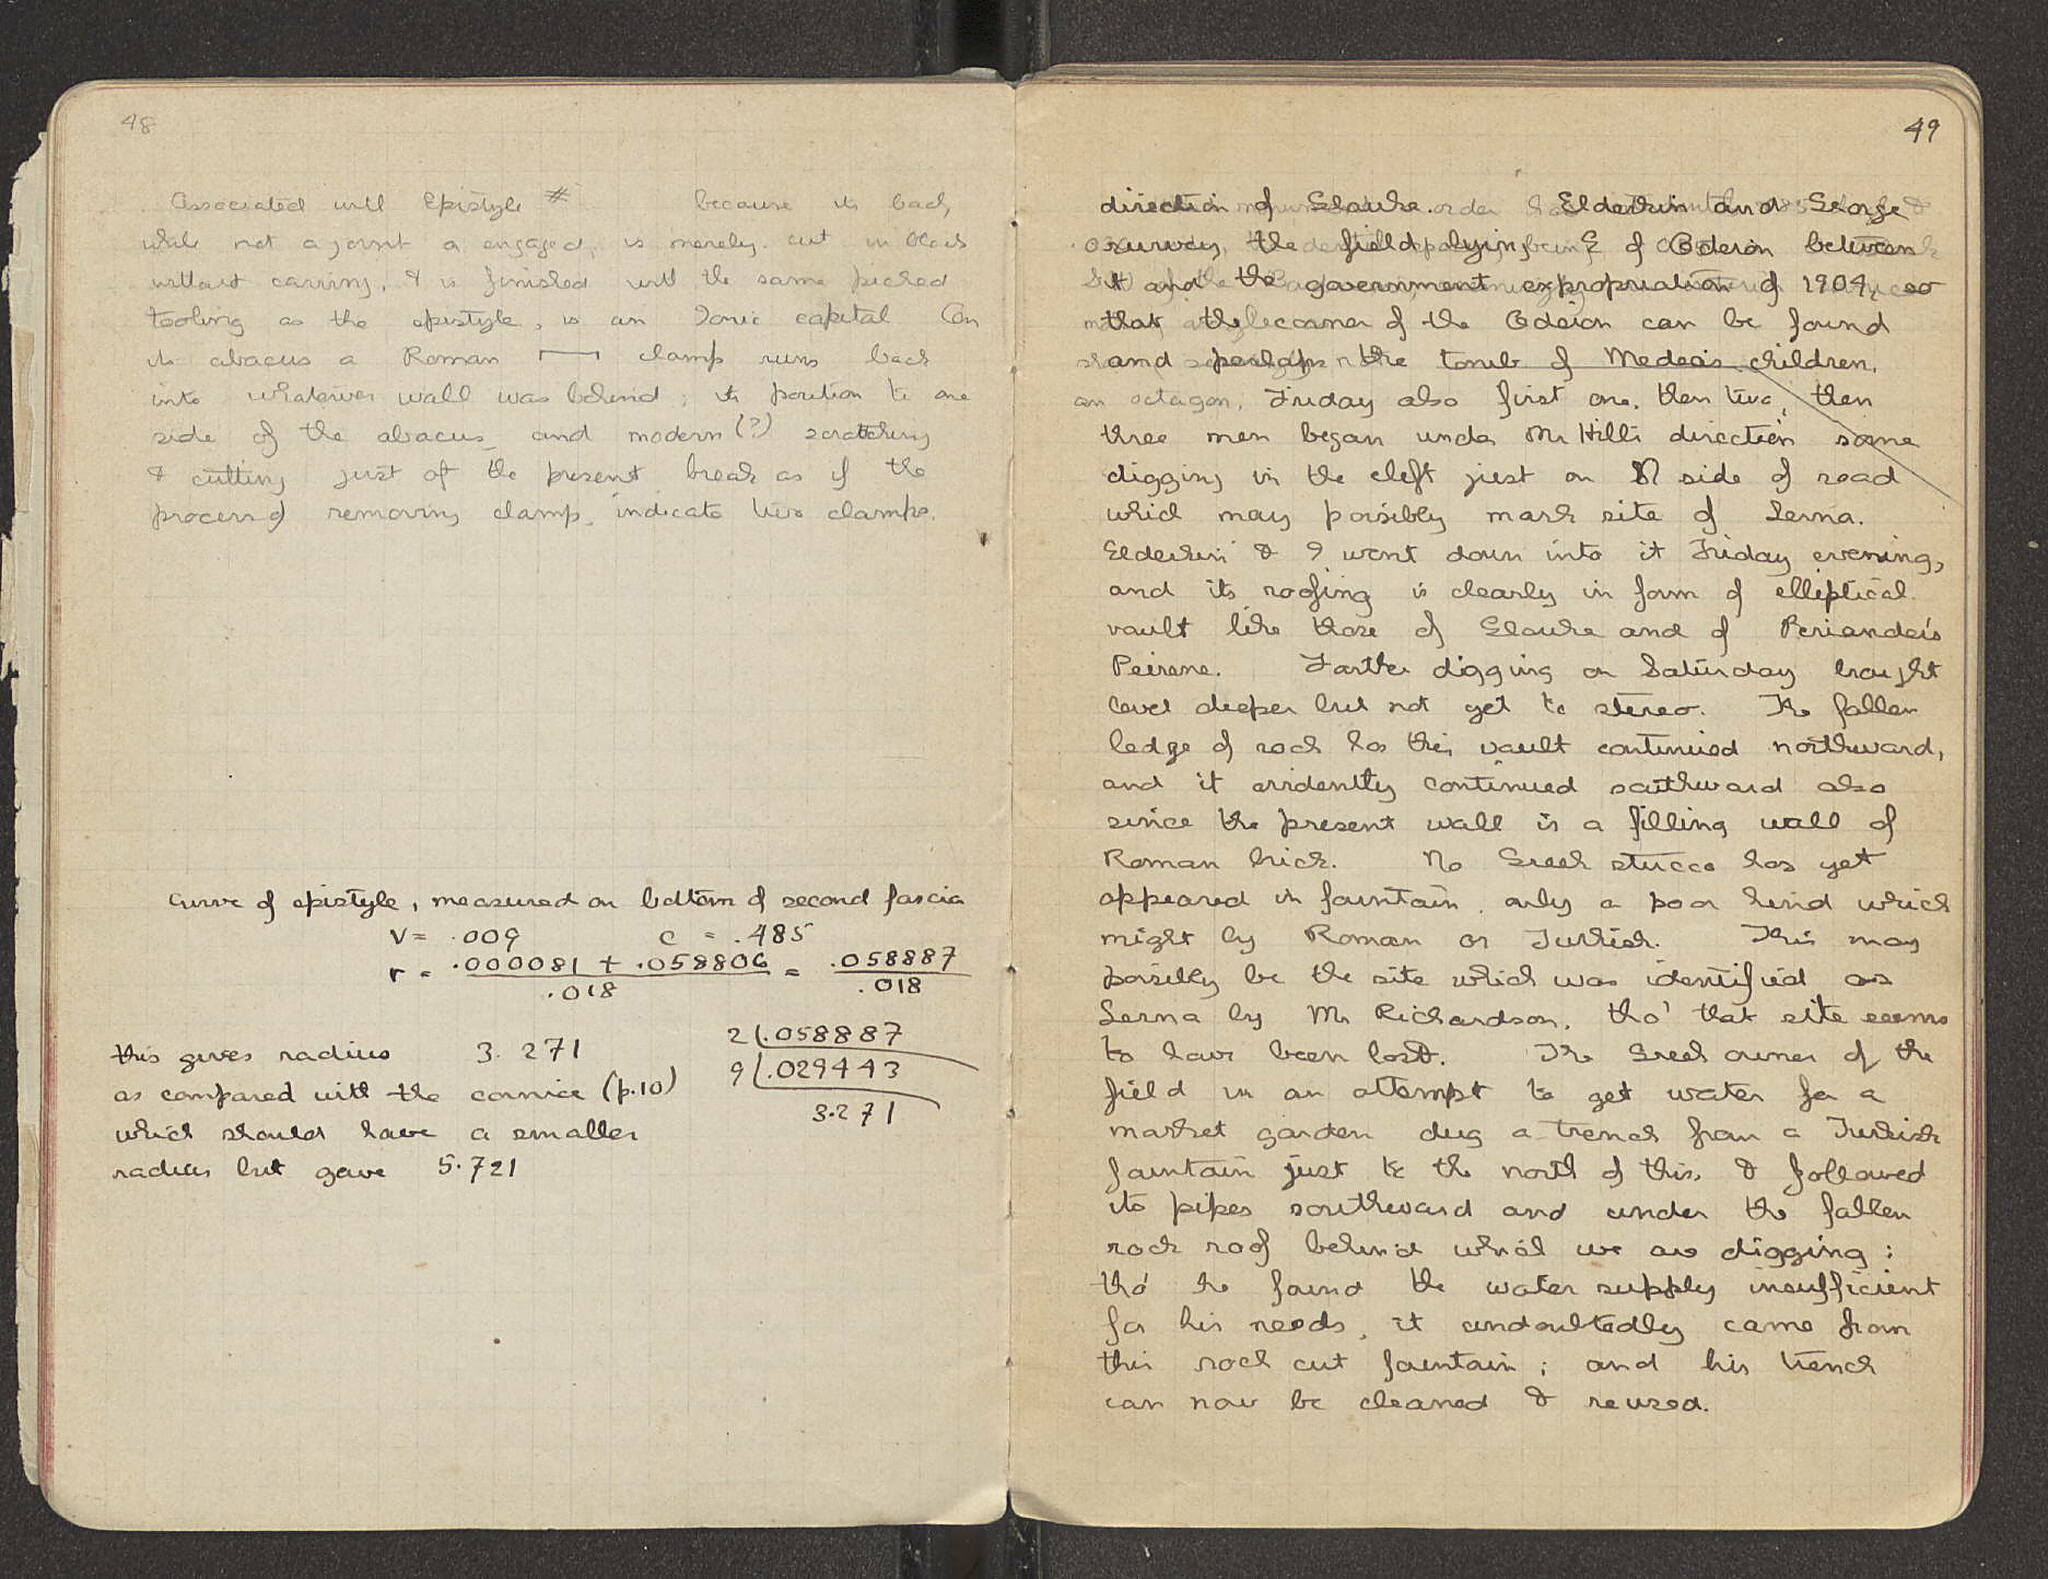 48
Associated with Epistyle # because its back,
while not a joint or engaged, is merely cut in block
without carving, & is finished with the same picked
tooling as the epistyle, is an Ionic capital On
its abacus a Roman clamp runs back
into whatever wall was behind; its position to one
side of the abacus, and modern (?) scratching
& cutting just at the present break as if the
process of removing clamp, indicate two clamps.
Curve of epistyle, measured on bottom of second fascia
V = .009 c = .485
r = .000081 + .058806 / .018 = .058887 / .018
this gives radius 3.271
as compared with the cornice (p.10)
which should have a smaller
radius but gave 5.721
2 | .058887
9 | .029443
3.271
49
direction of Glauke. Elderkin and George
survey the field lying E of Odeion between
it and the government expropriation of 1904, so
that the corner of the Odeion can be found
and perhaps the tomb of Medea's children,
an octagon. Friday also first one, then two, then
three men began under Mr Hill's direction some
digging in the cleft just on N side of road
which may possibly mark site of Lerna.
Elderkin & I went down into it Friday evening,
and its roofing is clearly in form of elliptical
vault like those of Glauke and of Periander's
Peirene. Farther digging on Saturday brought
level deeper but not yet to stereo. The fallen
ledge of rock has this vault continued northward,
and it evidently continued southward also
since the present wall is a filling wall of
Roman brick. No Greek stucco has yet
appeared in fountain, only a poor kind which
might by Roman or Turkish. This may
possibly be the site which was identified as
Lerna by Mr Richardson, tho' that site seems
to have been lost. The Greek owner of the
field in an attempt to get water for a
market garden dug a trench from a Turkish
fountain just to the north of this, & followed
its pipes southward and under the fallen
rock roof behind which we are digging:
tho' he found the water supply insufficient
for his needs, it undoubtedly came from
this rock cut fountain; and his trench
can now be cleaned & reused.